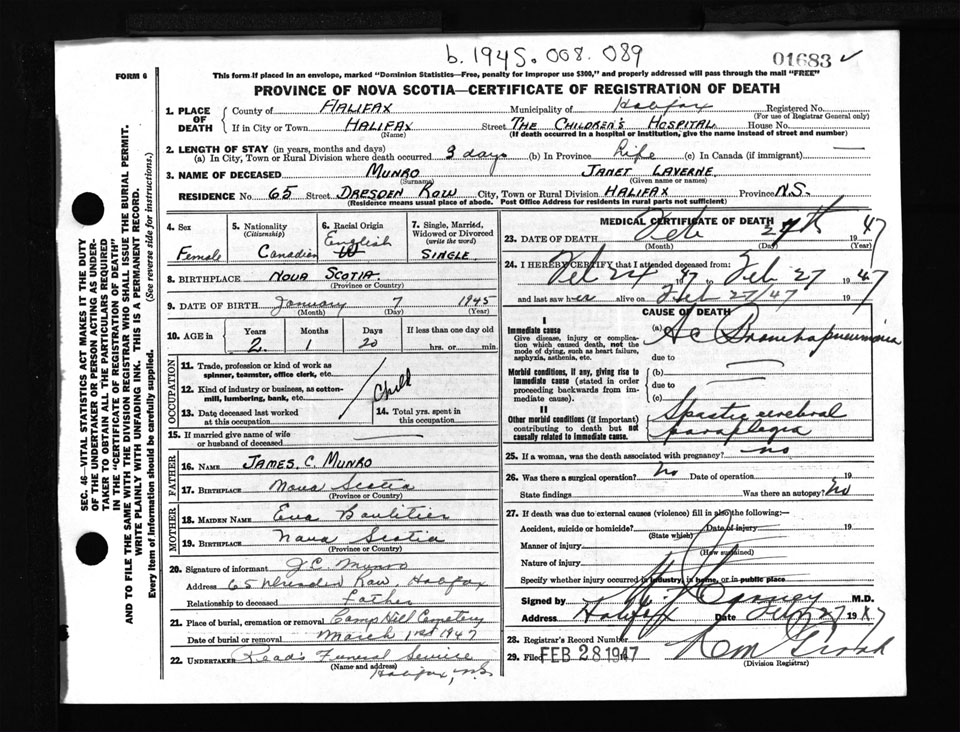 b. 1945. 008. 089
01683 ✓
FORM 6
This form if placed in an envelope, marked "Dominion Statistics—Free, penalty for improper use $300," and properly addressed will pass through the mail "FREE"
PROVINCE OF NOVA SCOTIA—CERTIFICATE OF REGISTRATION OF DEATH
SEC. 46—VITAL STATISTICS ACT MAKES IT THE DUTY
OF THE UNDERTAKER OR PERSON ACTING AS UNDER-
TAKER TO OBTAIN ALL THE PARTICULARS REQUIRED
IN THE "CERTIFICATE OF REGISTRATION OF DEATH"
AND TO FILE THE SAME WITH THE DIVISION REGISTRAR WHO SHALL ISSUE THE BURIAL PERMIT.
WRITE PLAINLY WITH UNFADING INK. THIS IS A PERMANENT RECORD.
Every item of Information should be carefully supplied. (See reverse side for instructions.)
1. PLACE OF DEATH
County of HALIFAX Municipality of Halifax Registered No.
(For use of Registrar General only)
If in City or Town HALIFAX Street THE CHILDREN'S HOSPITAL House No.
(Name) (If death occurred in a hospital or institution, give the name instead of street and number)
2. LENGTH OF STAY (in years, months and days)
(a) In City, Town or Rural Division where death occurred 3 days (b) In Province Life (c) In Canada (if immigrant) —
3. NAME OF DECEASED MUNRO JANET LAVERNE.
(Surname) (Given name or names)
RESIDENCE No 65 Street DRESDEN ROW City, Town or Rural Division HALIFAX Province N.S.
(Residence means usual place of abode. Post Office Address for residents in rural parts not sufficient)
4. Sex
Female
5. Nationality
(Citizenship)
Canadian
6. Racial Origin
English
7. Single, Married,
Widowed or Divorced
(write the word)
SINGLE.
8. BIRTHPLACE NOVA SCOTIA.
(Province or Country)
9. DATE OF BIRTH January 7 1945
(Month) (Day) (Year)
10. AGE in
Years Months Days If less than one day old
2 1 20 hrs. or min.
OCCUPATION
11. Trade, profession or kind of work as
spinner, teamster, office clerk, etc.
12. Kind of industry or business, as cotton-
mill, lumbering, bank, etc.
Child
13. Date deceased last worked
at this occupation
14. Total yrs. spent in
this occupation
15. If married give name of wife
or husband of deceased —
FATHER
16. NAME JAMES. C. MUNRO
17. BIRTHPLACE Nova Scotia
(Province or Country)
MOTHER
18. MAIDEN NAME Eva
19. BIRTHPLACE Nova Scotia
(Province or Country)
20. Signature of informant J.C. Munro
Address 65 Dresden Row, Halifax
Relationship to deceased Father
21. Place of burial, cremation or removal Camp Hill Cemetery
Date of burial or removal March 1st 1947
22. UNDERTAKER Read's Funeral Service
(Name and address)
Halifax, N.S.
MEDICAL CERTIFICATE OF DEATH
23. DATE OF DEATH Feb 27th 1947
(Month) (Day) (Year)
24. I HEREBY CERTIFY that I attended deceased from:
Feb 24 47 to Feb 27 1947
and last saw her alive on Feb 27/47 19
CAUSE OF DEATH
I
Immediate cause
Give disease, injury or complica-
tion which caused death, not the
mode of dying, such as heart failure,
asphyxia, asthenia, etc.
(a) Ac Bronchopneumonia
due to
Morbid conditions, if any, giving rise to
immediate cause (stated in order
proceeding backwards from im-
mediate cause).
(b) —
due to
(c)
II
Other morbid conditions (if important)
contributing to death but not
causally related to immediate cause.
Spastic cerebral
paraplegia
25. If a woman, was the death associated with pregnancy? no
26. Was there a surgical operation? No Date of operation 19
State findings Was there an autopsy? No
27. If death was due to external causes (violence) fill in also the following:—
Accident, suicide or homicide? Date of injury 19
(State which)
Manner of injury
(How sustained)
Nature of injury
Specify whether injury occurred in industry, in home, or in public place
Signed by M.D.
Address Halifax Date Feb 27 1947
28. Registrar's Record Number
29. Filed FEB 28 1947
(Division Registrar)